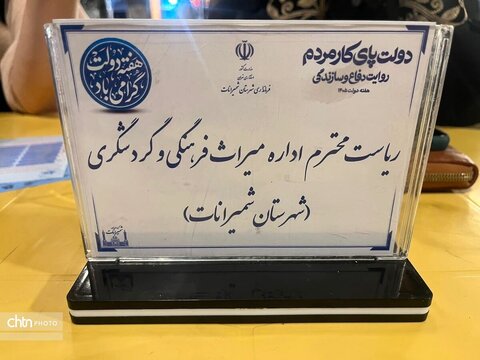 دولت پای کار مردم
روایت دفاع و سازندگی
هفته دولت ۱۴۰۵
وزارت کشور
استانداری تهران
فرمانداری شهرستان شمیرانات
هفته دولت
گرامی باد
ریاست محترم اداره میراث فرهنگی و گردشگری
(شهرستان شمیرانات)
شمیرانات
chtn PHOTO